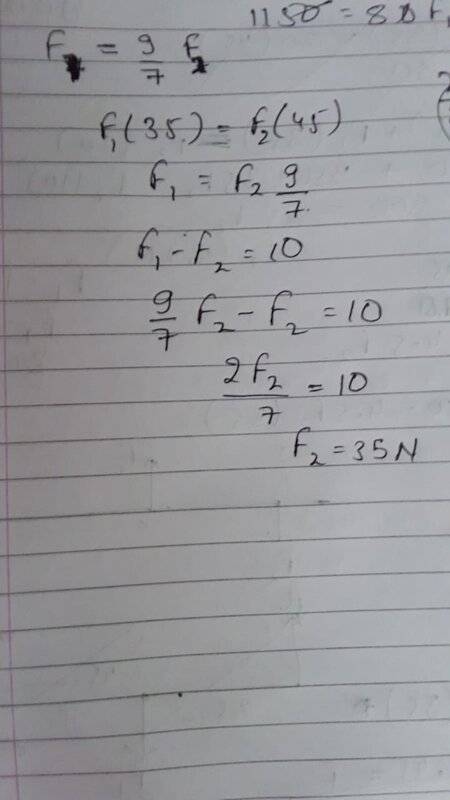 1150 = 80 F
F₁ = 9/7 F₂
F₁(35) = F₂(45)
F₁ = F₂ 9/7
F₁ - F₂ = 10
9/7 F₂ - F₂ = 10
2F₂/7 = 10
F₂ = 35N